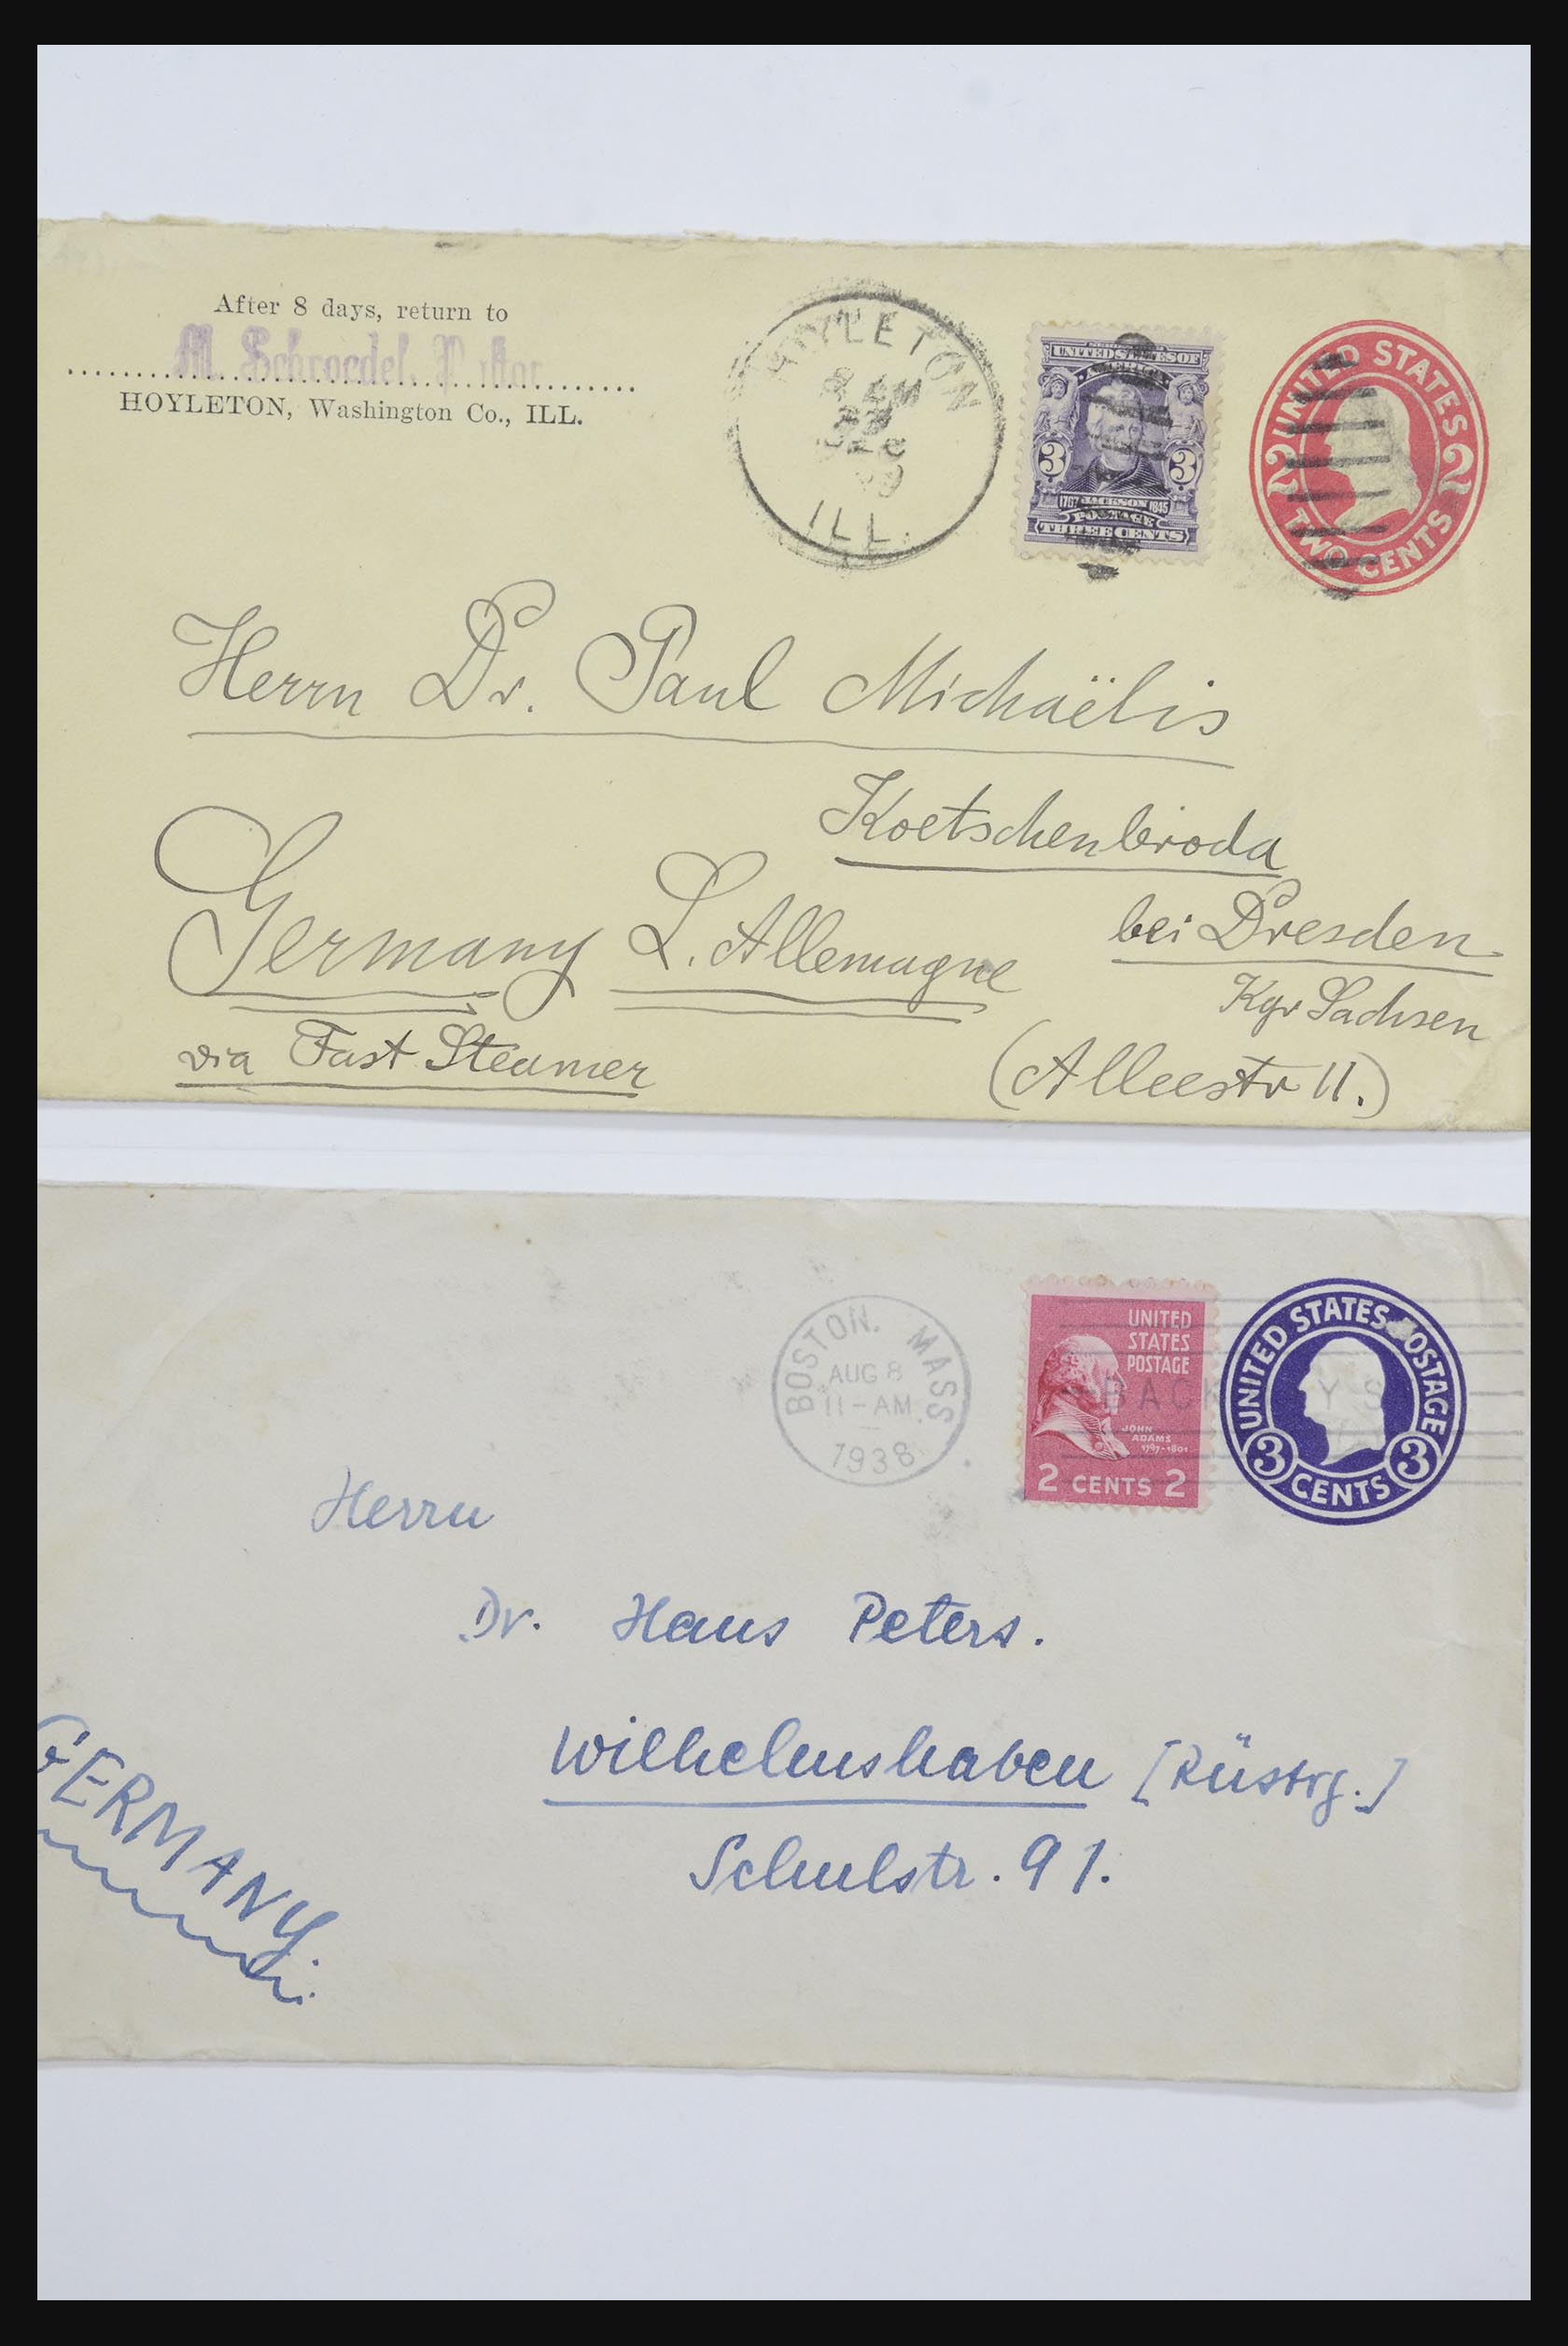 After 8 days, return to
M. Schroedel, Pastor
HOYLETON, Washington Co., ILL.
HOYLETON
8 AM
22
DEC
ILL.
SERIES 1902
UNITED STATES OF
AMERICA
3 3
1767 JACKSON 1845
POSTAGE
THREE CENTS
UNITED STATES
2 2
TWO CENTS
Herrn Dr. Paul Michaëlis
Koetschenbroda
bei Dresden
Kgr Sachsen
(Alleestr 11.)
Germany L. Allemagne
via Fast Steamer
BOSTON. MASS
AUG 8
11-AM
1938
UNITED
STATES
POSTAGE
JOHN
ADAMS
1797-1801
2 CENTS 2
UNITED STATES POSTAGE
3 CENTS 3
Herrn
Dr. Hans Peters.
Wilhelmshaven [Rüstrg.]
Schulstr. 91.
GERMANY